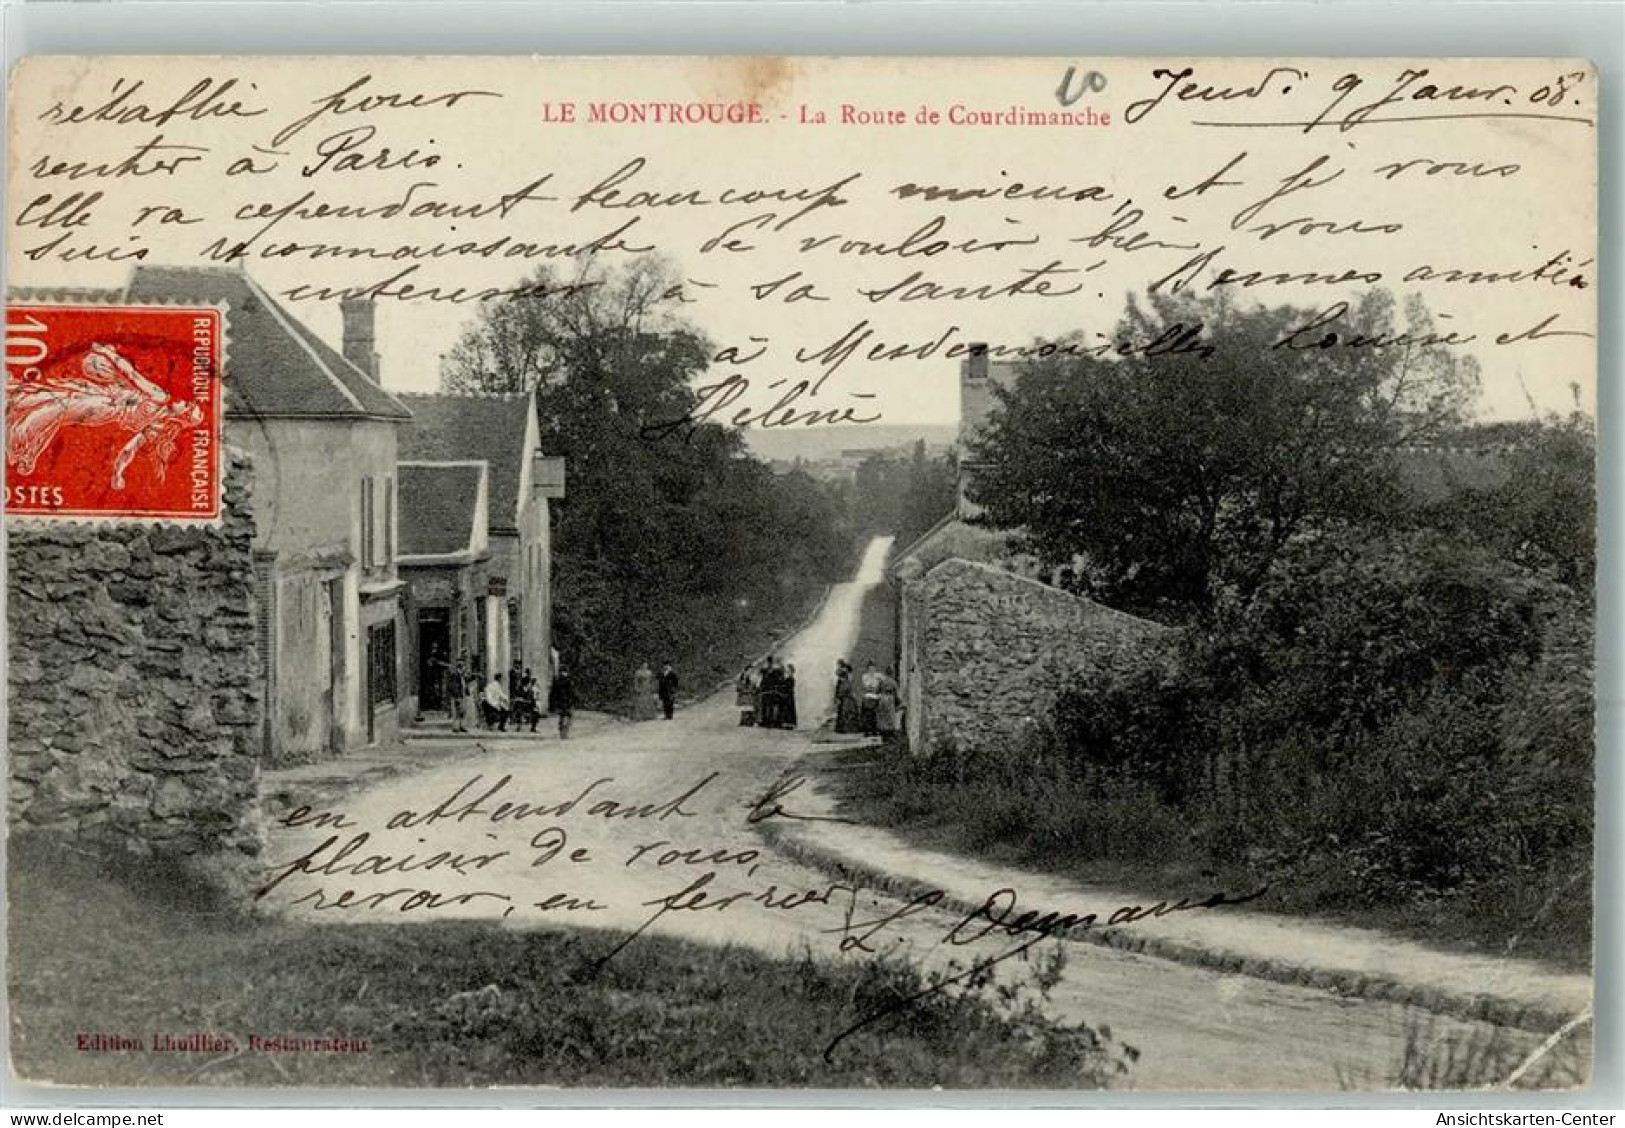 LE MONTROUGE. - La Route de Courdimanche
10
Jeudi 9 Janv. 08.
rétablie pour
rentrer à Paris.
Elle va cependant beaucoup mieux, et je vous
suis reconnaissante de vouloir bien vous
interesser à sa santé. Bonnes amitiés
à Mesdemoiselles Louise et
Hélène
10c
REPUBLIQUE FRANÇAISE
POSTES
en attendant le
plaisir de vous
revoir, en fevrier
L.
Edition Lhuillier, Restaurateur
Ansichtskarten-Center